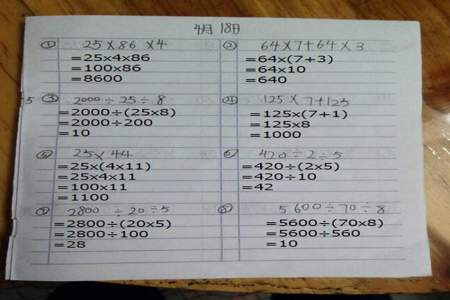 4月 18日
① 25×86×4
=25x4x86
=100x86
=8600
② 64×7+64×3
=64x(7+3)
=64x10
=640
③ 2000÷25÷8
=2000÷(25x8)
=2000÷200
=10
④ 125×7+125
=125x(7+1)
=125x8
=1000
⑤ 25×44
=25x(4x11)
=25x4x11
=100x11
=1100
⑥ 420÷2÷5
=420÷(2x5)
=420÷10
=42
⑦ 2800÷20÷5
=2800÷(20x5)
=2800÷100
=28
⑧ 5600÷70÷8
=5600÷(70x8)
=5600÷560
=10